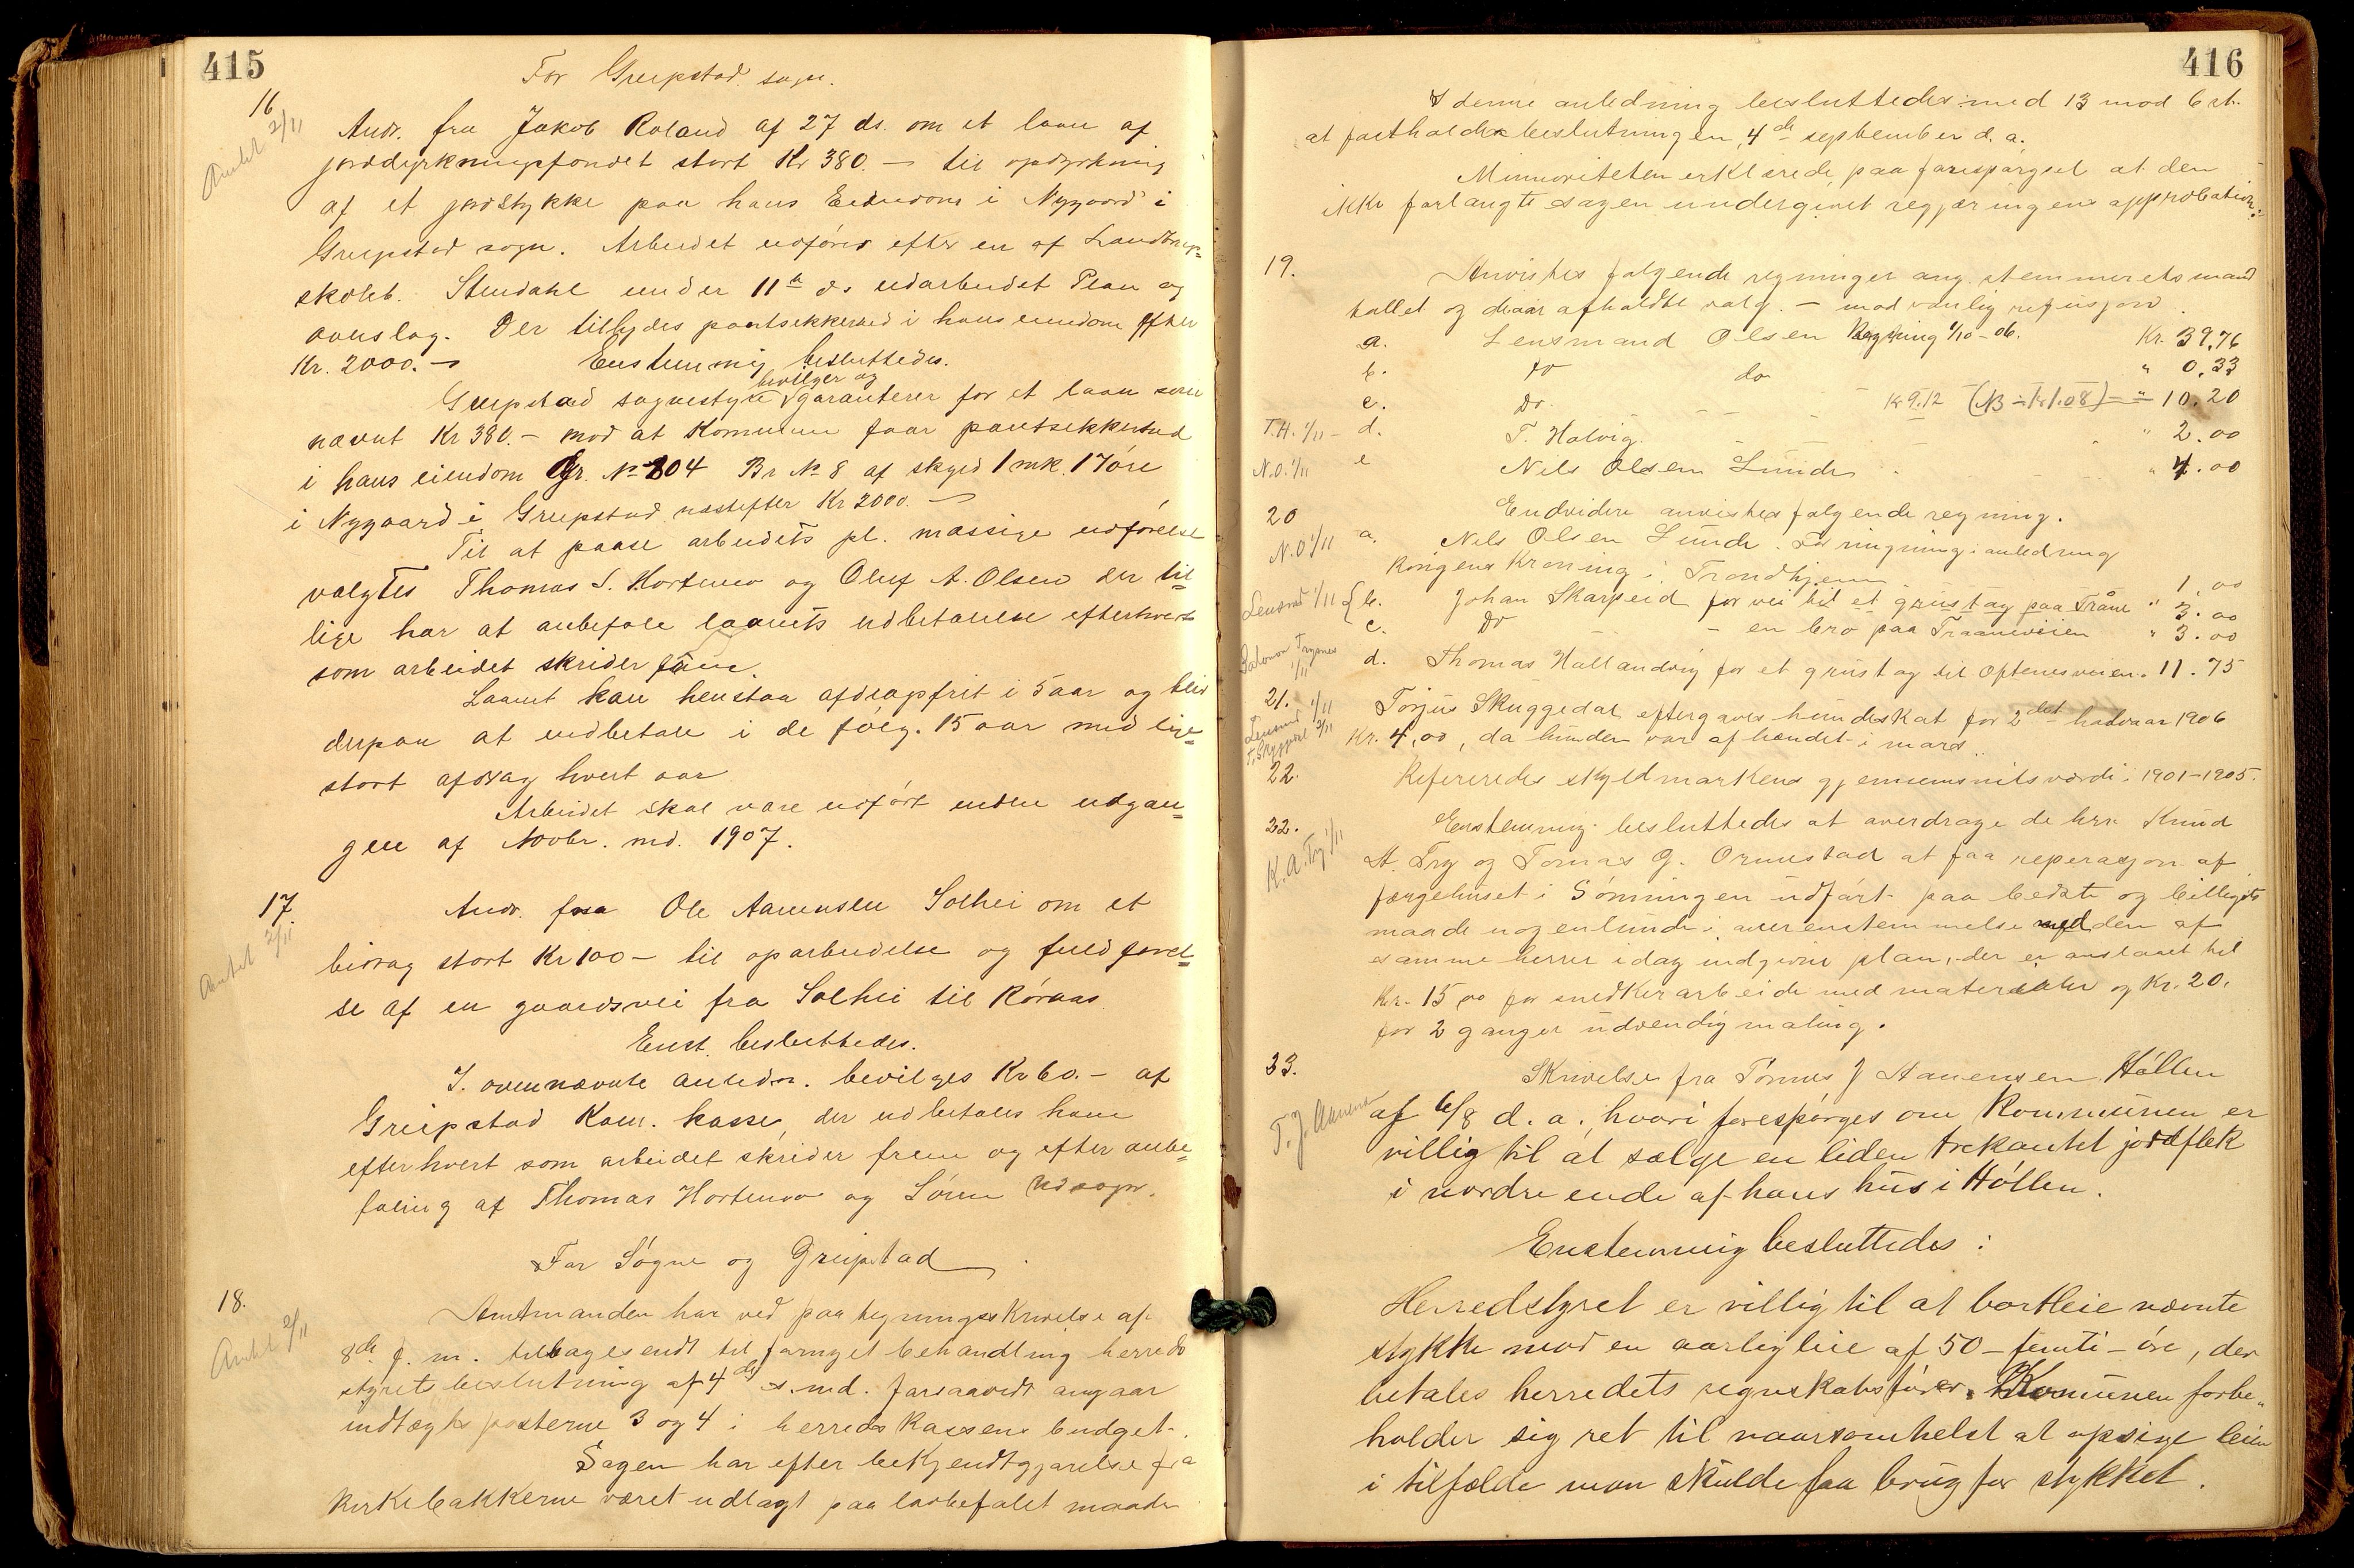 415
For Greipstad sogn.
16
Andr. fra Jakob Roland af 27 ds. om et laan af
Anbt 2/11
jorddyrkningsfondet stort Kr 380.— til opdyrkning
af et jordstykke paa hans Eiendom i Nygaard i
Greipstad sogn. Arbeidet udføres efter en af Landbrugs-
skoleb. Stendahl under 11te ds udarbeidet Plan og
overslag. Der tilbydes pantsikkerhed i hans eiendom efter
Kr. 2000.— Enstemmig besluttedes.
bevilger og
Greipstad sognestyre garanterer for et laan som
nævnt Kr 380.— mod at Kommunen faar pantsikkerhed
i hans eiendom Gr. No 104 Br No 8 af skyld 1 mk. 17 øre
i Nygaard i Greipstad næstefter Kr 2000.—
Til at paase arbeidets pl. mæssige udførelse
valgtes Thomas S. Hortemo og Oluf A. Olsen der til-
lige har at anbefale laanets udbetalelse efterhvert
som arbeidet skrider frem.
Laanet kan henstaa afdragsfrit i 5 aar og bliv
derpaa at indbetale i de følg. 15 aar med lige-
stort afdrag hvert aar
Arbeidet skal være udført inden udgan-
gen af Novbr. md. 1907.
17.
Andr. fra Ole Aanensen Solhei om et
Anbt 2/11
bidrag stort Kr 100— til oparbeidelse og fuldførel-
se af en gaardsvei fra Solhei til Røraas
Enst. besluttedes.
I. ovennævnte anledn. bevilges Kr 60.— af
Greipstad Kom. kasse, der udbetales ham
efterhvert som arbeidet skrider frem og efter anbe-
faling af Thomas Hortemo og Søren
For Søgne og Greipstad
18.
Amtmanden har ved paategningsskrivelse af
Anbt 2/11
8de f. m. tilbagesendt til fornyet behandling herreds
styrets beslutning af 4de s. md. forsaavidt angaar
indtægtsposterne 3 og 4 i herredskassens budget.
Sagen har efter bekjendtgjørelse fra
Kirkebakkerne været udlagt paa lovbefalet maade
416
I denne anledning besluttedes med 13 mod 6 st.
at fastholde beslutningen, 4de september d. a.
Minoriteten erklærede paa forespørgsel at den
ikke forlangte sagen undergivet regjeringens approbation.
19.
Anvistes følgende regninger ang. stemmeretsmand
tallet og iaar afholdte valg. — mod vanlig refusjon.
a. Lensmand Olsen Regning 1/10-06. Kr. 39,76
b. Do do " 0,33
c. Do. Kr 9.12 (NB ÷ Kr 1.08) = " 10.20
T.H. 1/11 — d. T. Hatvig. " 2.00
N.O. 1/11 e Nils Olsen Lunde " 4.00
20 Endvidere anvistes følgende regning.
N.O 1/11 a. Nils Olsen Lunde. For ringning i anledning
Kongens Kroning i Trondhjem 1,00
Lensmd 1/11 b. Johan Skarpeid for vei til et grustag paa Tråne " 3.00
c. Do — en bro paa Traaneveien " 3.00
1/11
d. Thomas Hallandvig for et grustag til Oftenesveien. 11.75
21. Torjus Skuggedal eftergaves hundeskat for 2det halvaar 1906
Lensmd 1/11
T. Skuggedal 2/11
Kr. 4,00, da hunden var afhændet i mars.
22.
Refereredes skyldmarkens gjennemsnitsværdi 1901-1905.
22. Enstemmig besluttedes at overdrage de hrr. Knud
K.A. Try 1/11
A. Try og Tomas G. Ormestad at faa reperasjon af
færgehuset i Sønningen udført paa bedste og billigste
maade nogenlunde i overenstemmelse med den af
samme herrer idag indgivne plan, der er anslaaet til
Kr. 15,00 for snedkerarbeide med materialer og Kr. 20.
for 2 ganger udvendig maling.
33.
Skrivelse fra Tomas J Aanensen Høllen
T. J. Aanens
af 6/8 d. a., hvori forespørges om Kommunen er
villig til at sælge en liden trekantet jordflek
i nordre ende af hans hus i Høllen.
Enstemmig besluttedes:
Herredstyret er villig til at bortleie nævnte
stykke mod en aarlig leie af 50 — femti — øre, der
betales herredets regnskabsfører. Kommunen forbe-
holder sig ret til naarsomhelst at opsige leien
i tilfælde man skulde faa brug for stykket.